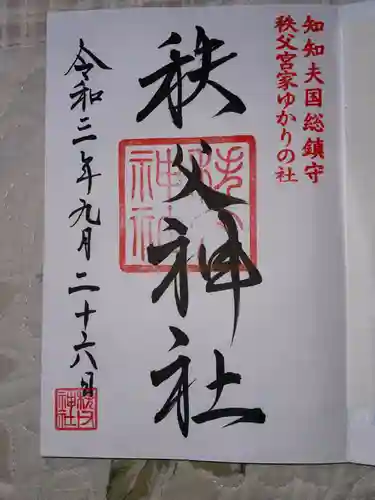 知知夫国総鎮守
秩父宮家ゆかりの社
秩父神社
令和三年九月二十六日
秩父神社
秩父神社